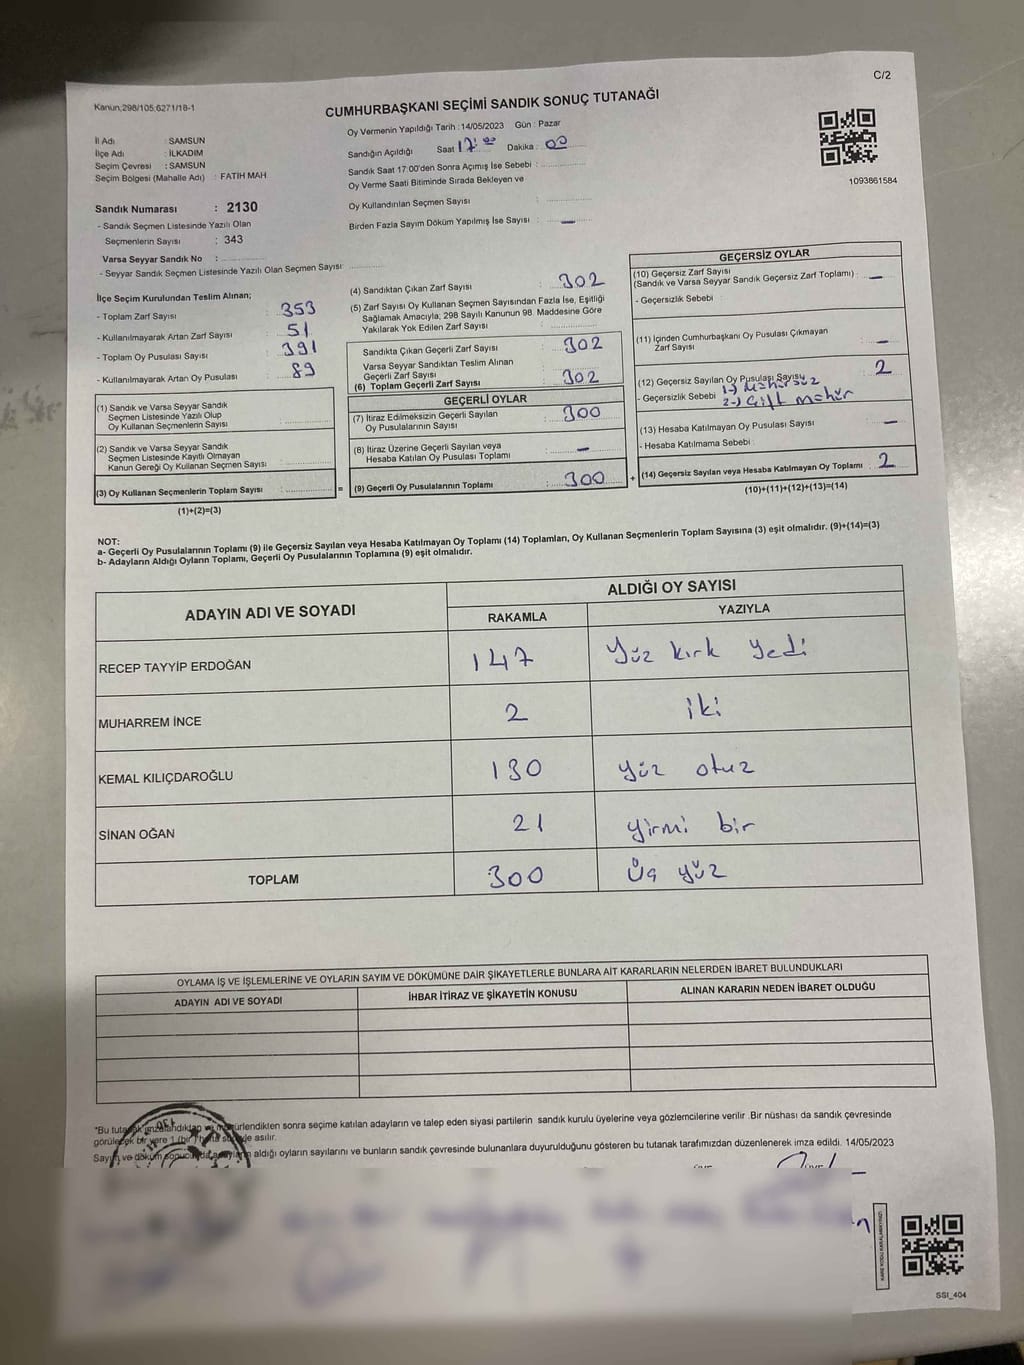 C/2
Kanun:298/105;6271/18-1
CUMHURBAŞKANI SEÇİMİ SANDIK SONUÇ TUTANAĞI
İl Adı : SAMSUN
İlçe Adı : İLKADIM
Seçim Çevresi : SAMSUN
Seçim Bölgesi (Mahalle Adı) : FATİH MAH
Oy Vermenin Yapıldığı Tarih : 14/05/2023 Gün : Pazar
Sandığın Açıldığı Saat 17:00 Dakika : 00
Sandık Saat 17:00'den Sonra Açımış İse Sebebi :
Oy Verme Saati Bitiminde Sırada Bekleyen ve
Oy Kullandırılan Seçmen Sayısı :
Birden Fazla Sayım Döküm Yapılmış İse Sayısı : —
1093861584
Sandık Numarası : 2130
- Sandık Seçmen Listesinde Yazılı Olan
Seçmenlerin Sayısı : 343
Varsa Seyyar Sandık No :
- Seyyar Sandık Seçmen Listesinde Yazılı Olan Seçmen Sayısı:
İlçe Seçim Kurulundan Teslim Alınan;
- Toplam Zarf Sayısı : 353
- Kullanılmayarak Artan Zarf Sayısı : 51
- Toplam Oy Pusulası Sayısı : 391
- Kullanılmayarak Artan Oy Pusulası : 89
(1) Sandık ve Varsa Seyyar Sandık
Seçmen Listesinde Yazılı Olup
Oy Kullanan Seçmenlerin Sayısı :
(2) Sandık ve Varsa Seyyar Sandık
Seçmen Listesinde Kayıtlı Olmayan
Kanun Gereği Oy Kullanan Seçmen Sayısı :
(3) Oy Kullanan Seçmenlerin Toplam Sayısı :
(1)+(2)=(3)
(4) Sandıktan Çıkan Zarf Sayısı : 302
(5) Zarf Sayısı Oy Kullanan Seçmen Sayısından Fazla İse, Eşitliği
Sağlamak Amacıyla; 298 Sayılı Kanunun 98. Maddesine Göre
Yakılarak Yok Edilen Zarf Sayısı :
Sandıkta Çıkan Geçerli Zarf Sayısı : 302
Varsa Seyyar Sandıktan Teslim Alınan
Geçerli Zarf Sayısı
(6) Toplam Geçerli Zarf Sayısı : 302
GEÇERLİ OYLAR
(7) İtiraz Edilmeksizin Geçerli Sayılan
Oy Pusulalarının Sayısı : 300
(8) İtiraz Üzerine Geçerli Sayılan veya
Hesaba Katılan Oy Pusulası Toplamı : —
= (9) Geçerli Oy Pusulalarının Toplamı : 300
GEÇERSİZ OYLAR
(10) Geçersiz Zarf Sayısı
(Sandık ve Varsa Seyyar Sandık Geçersiz Zarf Toplamı) : —
- Geçersizlik Sebebi :
(11) İçinden Cumhurbaşkanı Oy Pusulası Çıkmayan
Zarf Sayısı : —
(12) Geçersiz Sayılan Oy Pusulası Sayısı : 2
- Geçersizlik Sebebi 1-) Mühürsüz
2-) Çift mühür
(13) Hesaba Katılmayan Oy Pusulası Sayısı : —
- Hesaba Katılmama Sebebi :
+ (14) Geçersiz Sayılan veya Hesaba Katılmayan Oy Toplamı : 2
(10)+(11)+(12)+(13)=(14)
NOT:
a- Geçerli Oy Pusulalarının Toplamı (9) ile Geçersiz Sayılan veya Hesaba Katılmayan Oy Toplamı (14) Toplamları, Oy Kullanan Seçmenlerin Toplam Sayısına (3) eşit olmalıdır. (9)+(14)=(3)
b- Adayların Aldığı Oyların Toplamı, Geçerli Oy Pusulalarının Toplamına (9) eşit olmalıdır.
ADAYIN ADI VE SOYADI
ALDIĞI OY SAYISI
RAKAMLA YAZIYLA
RECEP TAYYİP ERDOĞAN 147 Yüz kırk yedi
MUHARREM İNCE 2 iki
KEMAL KILIÇDAROĞLU 130 yüz otuz
SİNAN OĞAN 21 yirmi bir
TOPLAM 300 üç yüz
OYLAMA İŞ VE İŞLEMLERİNE VE OYLARIN SAYIM VE DÖKÜMÜNE DAİR ŞİKAYETLERLE BUNLARA AİT KARARLARIN NELERDEN İBARET BULUNDUKLARI
ADAYIN ADI VE SOYADI İHBAR İTİRAZ VE ŞİKAYETİN KONUSU ALINAN KARARIN NEDEN İBARET OLDUĞU
*Bu tutanak imzalandıktan ve mühürlendikten sonra seçime katılan adayların ve talep eden siyasi partilerin sandık kurulu üyelerine veya gözlemcilerine verilir. Bir nüshası da sandık çevresinde
görülecek bir yere 1 (bir) hafta süreyle asılır.
Sayım ve döküm sonucunda adayların aldığı oyların sayılarını ve bunların sandık çevresinde bulunanlara duyurulduğunu gösteren bu tutanak tarafımızdan düzenlenerek imza edildi. 14/05/2023
SSI_404